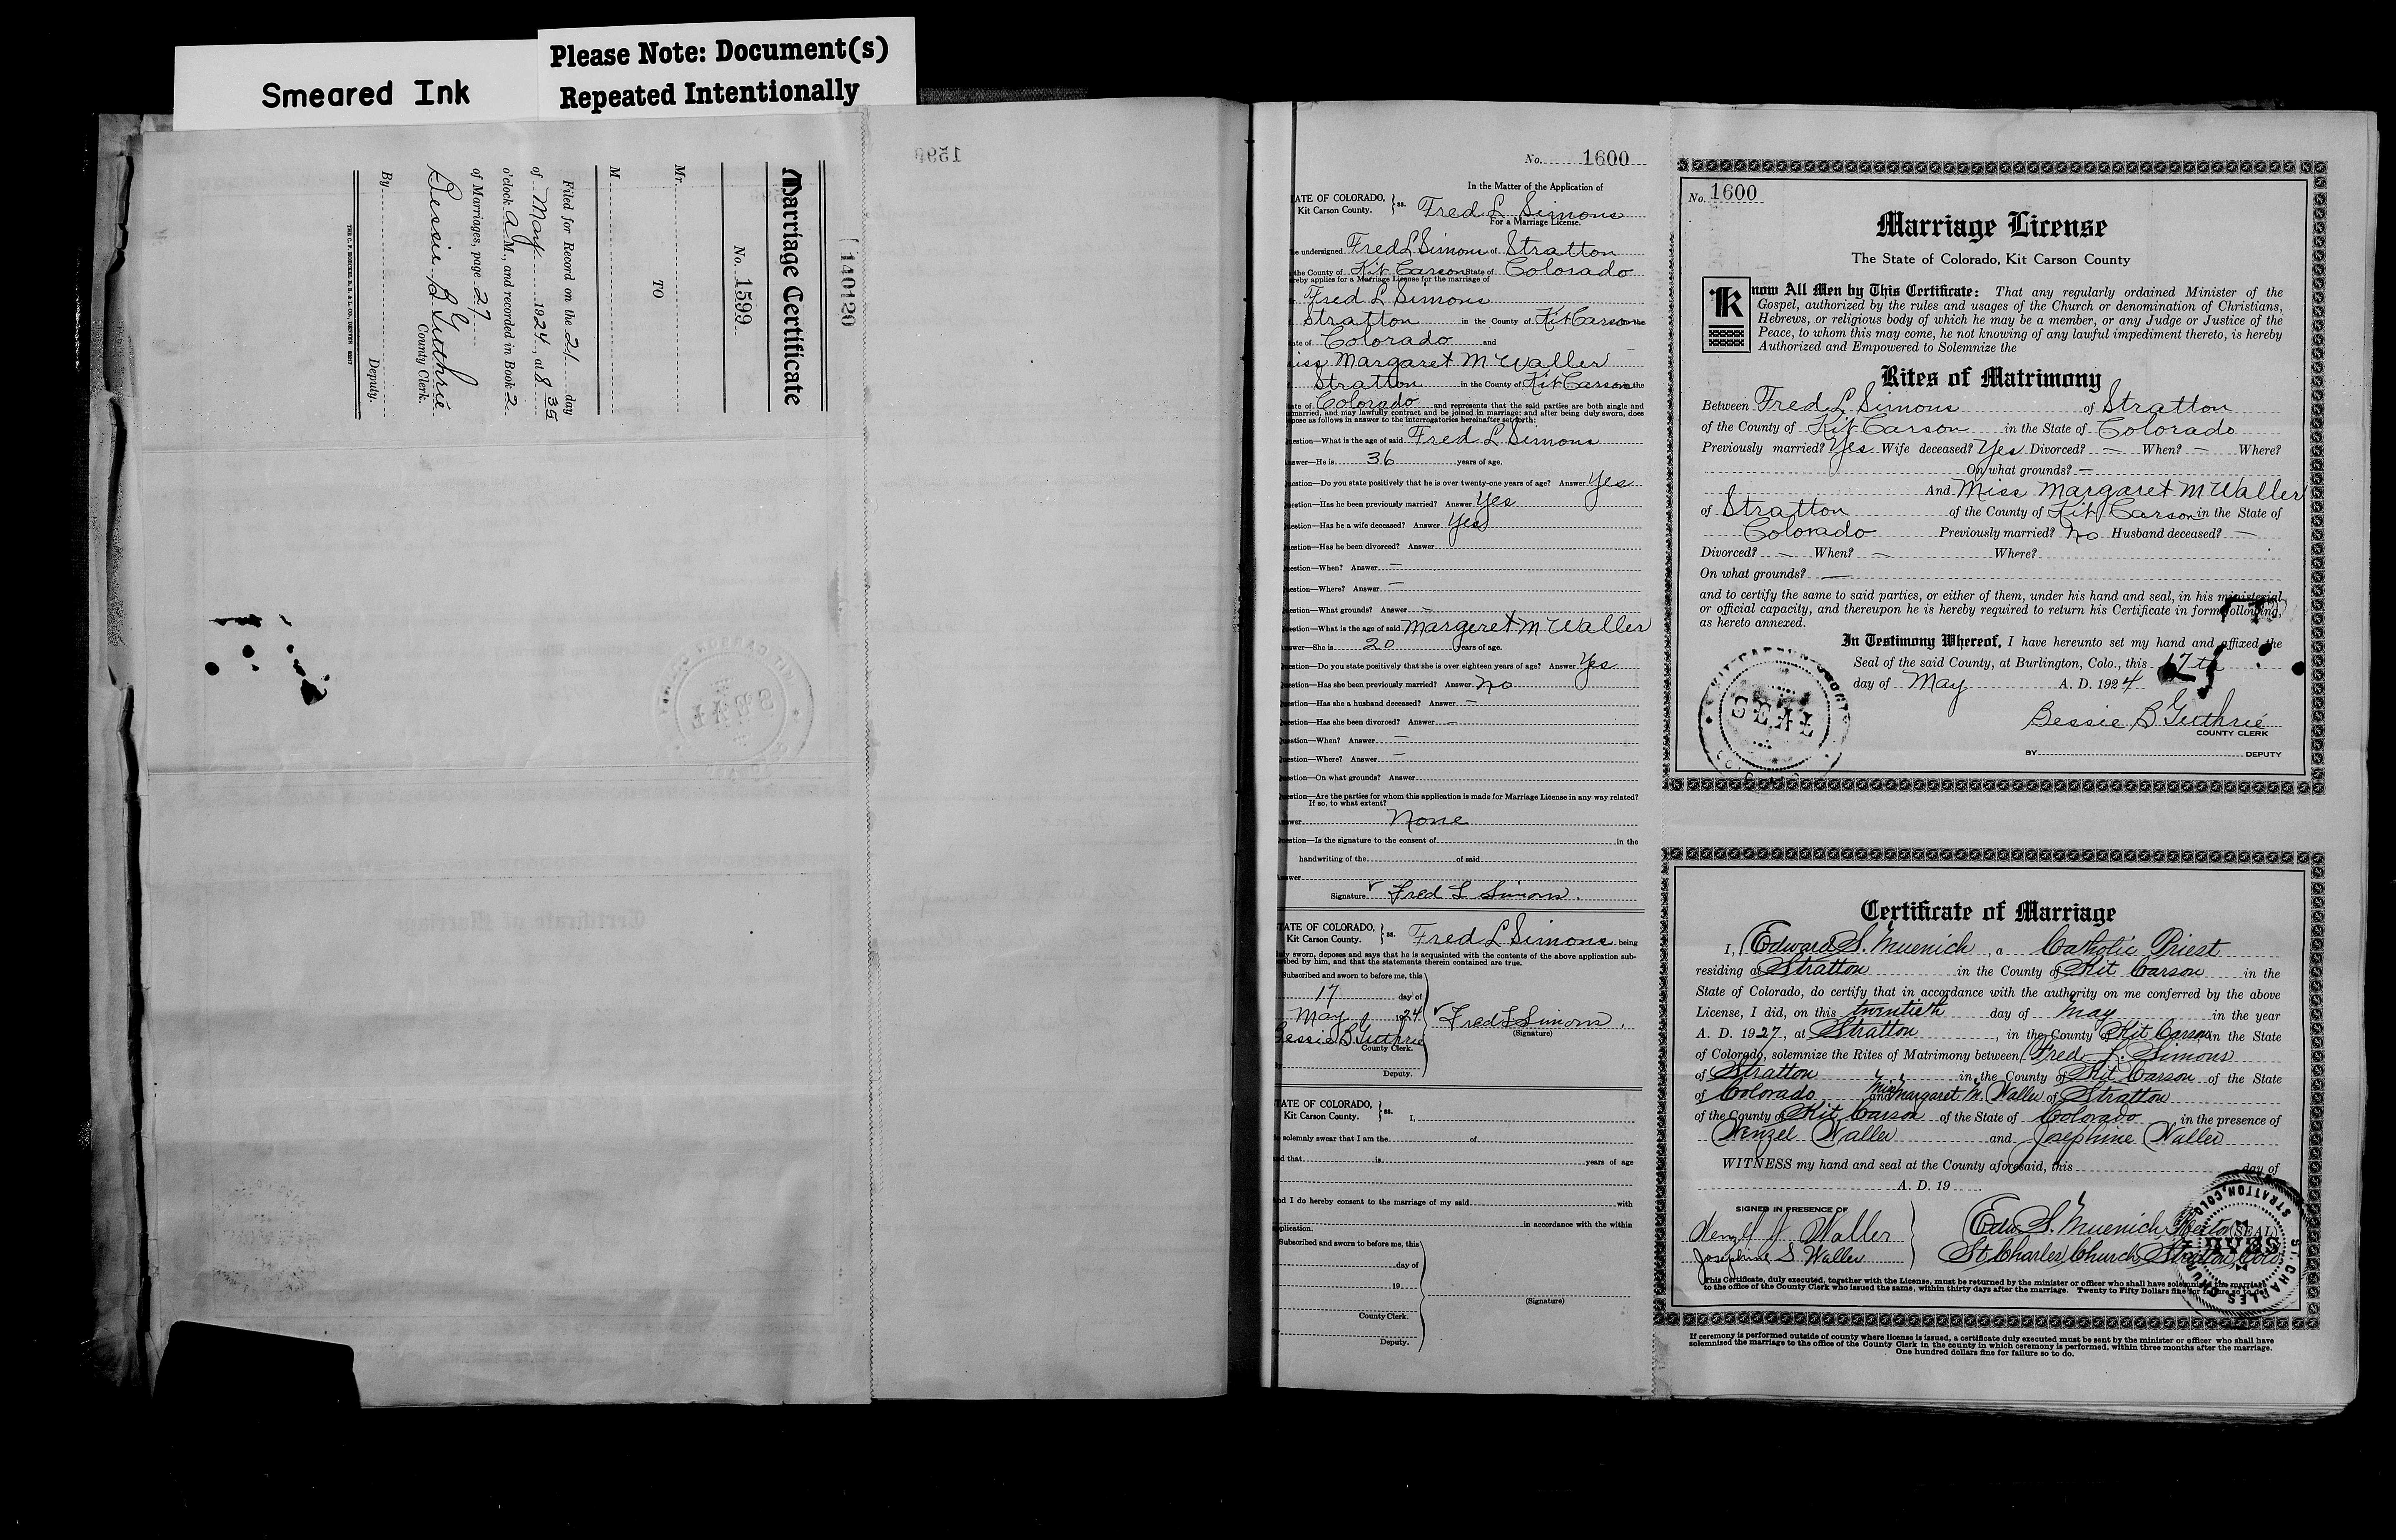 Smeared Ink
Please Note: Document(s)
Repeated Intentionally
140120
Marriage Certificate
No. 1599
Mr.
TO
M
Filed for Record on the 21 day
of May 1924, at 8 35
o'clock A M., and recorded in Book 2
of Marriages, page 27
Bessie B Guthrie
County Clerk.
By Deputy.
1599
No. 1600
In the Matter of the Application of
TATE OF COLORADO, } ss. Fred L Simons
Kit Carson County.
For a Marriage License.
he undersigned Fred L Simons of Stratton
the County of Kit Carson State of Colorado
ereby applies for a Marriage License for the marriage of
Fred L Simons
Stratton in the County of Kit Carson the
ate of Colorado and
iss Margaret M Waller
Stratton in the County of Kit Carson the
ate of Colorado and represents that the said parties are both single and
nmarried, and may lawfully contract and be joined in marriage; and after being duly sworn, does
epose as follows in answer to the interrogatories hereinafter set forth:
uestion—What is the age of said Fred L Simons
nswer—He is 36 years of age.
uestion—Do you state positively that he is over twenty-one years of age? Answer Yes
uestion—Has he been previously married? Answer Yes
uestion—Has he a wife deceased? Answer Yes
uestion—Has he been divorced? Answer
uestion—When? Answer —
uestion—Where? Answer —
uestion—What grounds? Answer —
uestion—What is the age of said Margeret M Waller
nswer—She is 20 years of age.
uestion—Do you state positively that she is over eighteen years of age? Answer Yes
uestion—Has she been previously married? Answer No
uestion—Has she a husband deceased? Answer —
uestion—Has she been divorced? Answer —
uestion—When? Answer —
uestion—Where? Answer —
uestion—On what grounds? Answer
uestion—Are the parties for whom this application is made for Marriage License in any way related?
If so, to what extent?
nswer None
uestion—Is the signature to the consent of in the
handwriting of the of said
nswer
Signature Fred L Simons.
TATE OF COLORADO, } ss. Fred L Simons being
Kit Carson County.
ly sworn, deposes and says that he is acquainted with the contents of the above application sub-
ribed by him, and that the statements therein contained are true.
Subscribed and sworn to before me, this
17 day of
May 1924 Fred L Simons.
(Signature)
Bessie B Guthrie
County Clerk.
Deputy.
TATE OF COLORADO, } ss. I,
Kit Carson County.
solemnly swear that I am the of
nd that is years of age
nd I do hereby consent to the marriage of my said with
in accordance with the within
pplication.
Subscribed and sworn to before me, this
day of
19
(Signature)
County Clerk.
Deputy.
No. 1600
Marriage License
The State of Colorado, Kit Carson County
Know All Men by This Certificate: That any regularly ordained Minister of the
Gospel, authorized by the rules and usages of the Church or denomination of Christians,
Hebrews, or religious body of which he may be a member, or any Judge or Justice of the
Peace, to whom this may come, he not knowing of any lawful impediment thereto, is hereby
Authorized and Empowered to Solemnize the
Rites of Matrimony
Between Fred L Simons of Stratton
of the County of Kit Carson in the State of Colorado
Previously married? Yes Wife deceased? Yes Divorced? — When? — Where?
On what grounds? —
And Miss Margaret M Waller
of Stratton of the County of Kit Carson in the State of
Colorado Previously married? No Husband deceased? —
Divorced? — When? — Where?
On what grounds? —
and to certify the same to said parties, or either of them, under his hand and seal, in his ministerial
or official capacity, and thereupon he is hereby required to return his Certificate in form following,
as hereto annexed.
In Testimony Whereof, I have hereunto set my hand and affixed the
Seal of the said County, at Burlington, Colo., this 17th
day of May A. D. 1924
Bessie B Guthrie
COUNTY CLERK
BY DEPUTY
SEAL
Certificate of Marriage
I, Edward S. Muenich, a Catholic Priest
residing at Stratton in the County of Kit Carson in the
State of Colorado, do certify that in accordance with the authority on me conferred by the above
License, I did, on this twentieth day of May in the year
A. D. 1927, at Stratton, in the County of Kit Carson, in the State
of Colorado, solemnize the Rites of Matrimony between Fred L. Simons
of Stratton in the County of Kit Carson of the State
of Colorado and Miss Margaret M. Waller of Stratton
of the County of Kit Carson of the State of Colorado in the presence of
Wenzel Waller and Josephine Waller
WITNESS my hand and seal at the County aforesaid, this day of
A. D. 19
SIGNED IN PRESENCE OF
Wenzel J Waller
Josephine S Waller
Edw. S. Muenich, Rector (SEAL)
St. Charles Church, Stratton, Colo.
ST. CHARLES CHURCH STRATTON, COLO. SEAL
This Certificate, duly executed, together with the License, must be returned by the minister or officer who shall have solemnized the marriage
to the office of the County Clerk who issued the same, within thirty days after the marriage. Twenty to Fifty Dollars fine for failure so to do.
If ceremony is performed outside of county where license is issued, a certificate duly executed must be sent by the minister or officer who shall have
solemnized the marriage to the office of the County Clerk in the county in which ceremony is performed, within three months after the marriage.
One hundred dollars fine for failure so to do.